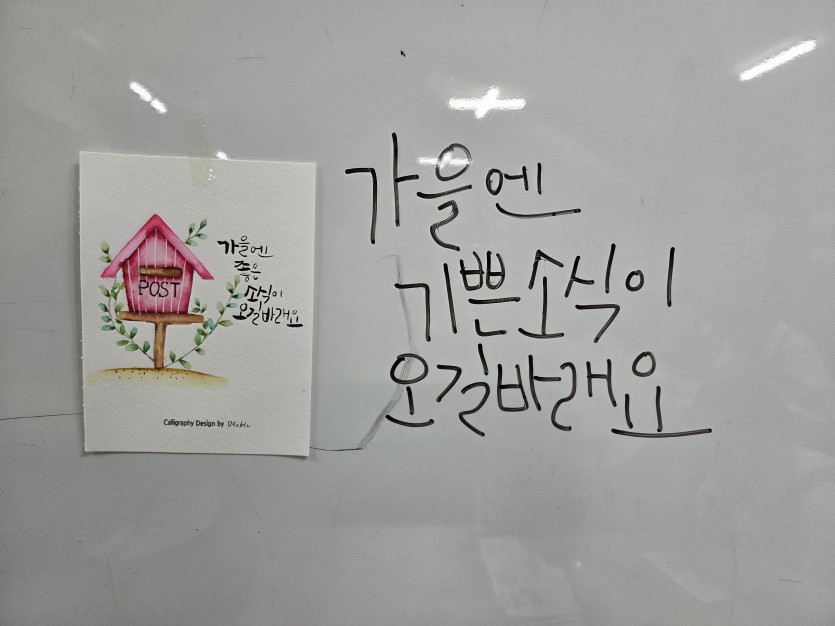 가을엔
좋은
소식이
오길바래요
POST
Calligraphy Design by
가을엔
기쁜소식이
오길바래요